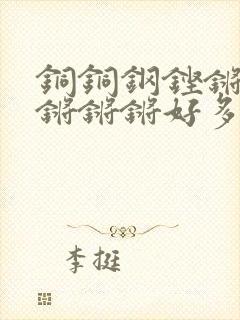 銅銅鋼鏗鏘
鏘鏘鏘好多
李挺